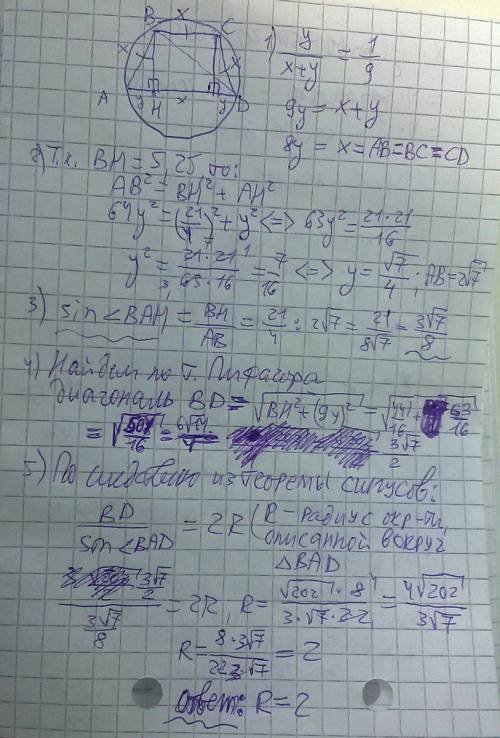 B x C
x x
A y H x y D
1) y/(x+y) = 1/9
9y = x+y
8y = x = AB = BC = CD
2) Т.к. BH = 5,25 то:
AB² = BH² + AH²
64y² = (21/4)² + y² <=> 63y² = 21·21/16
y² = 21·21/63·16 = 7/16 <=> y = √7/4 ; AB = 2√7
3) sin∠BAH = BH/AB = 21/4 : 2√7 = 21/8√7 = 3√7/8
4) Найдём по т. Пифагора
диагональ BD = √(BH²+(9y)²) = √(441/16 + 63/16)
= = 3√7/2
5) По следствию из теоремы синусов:
BD/sin∠BAD = 2R (R – радиус окр-ти,
описанной вокруг
△BAD
3√7/2 / 3√7/8 = 2R, R = √202·8/3·√7·22 = 4√202/3√7
R = 8·3√7/ = 2
Ответ: R = 2